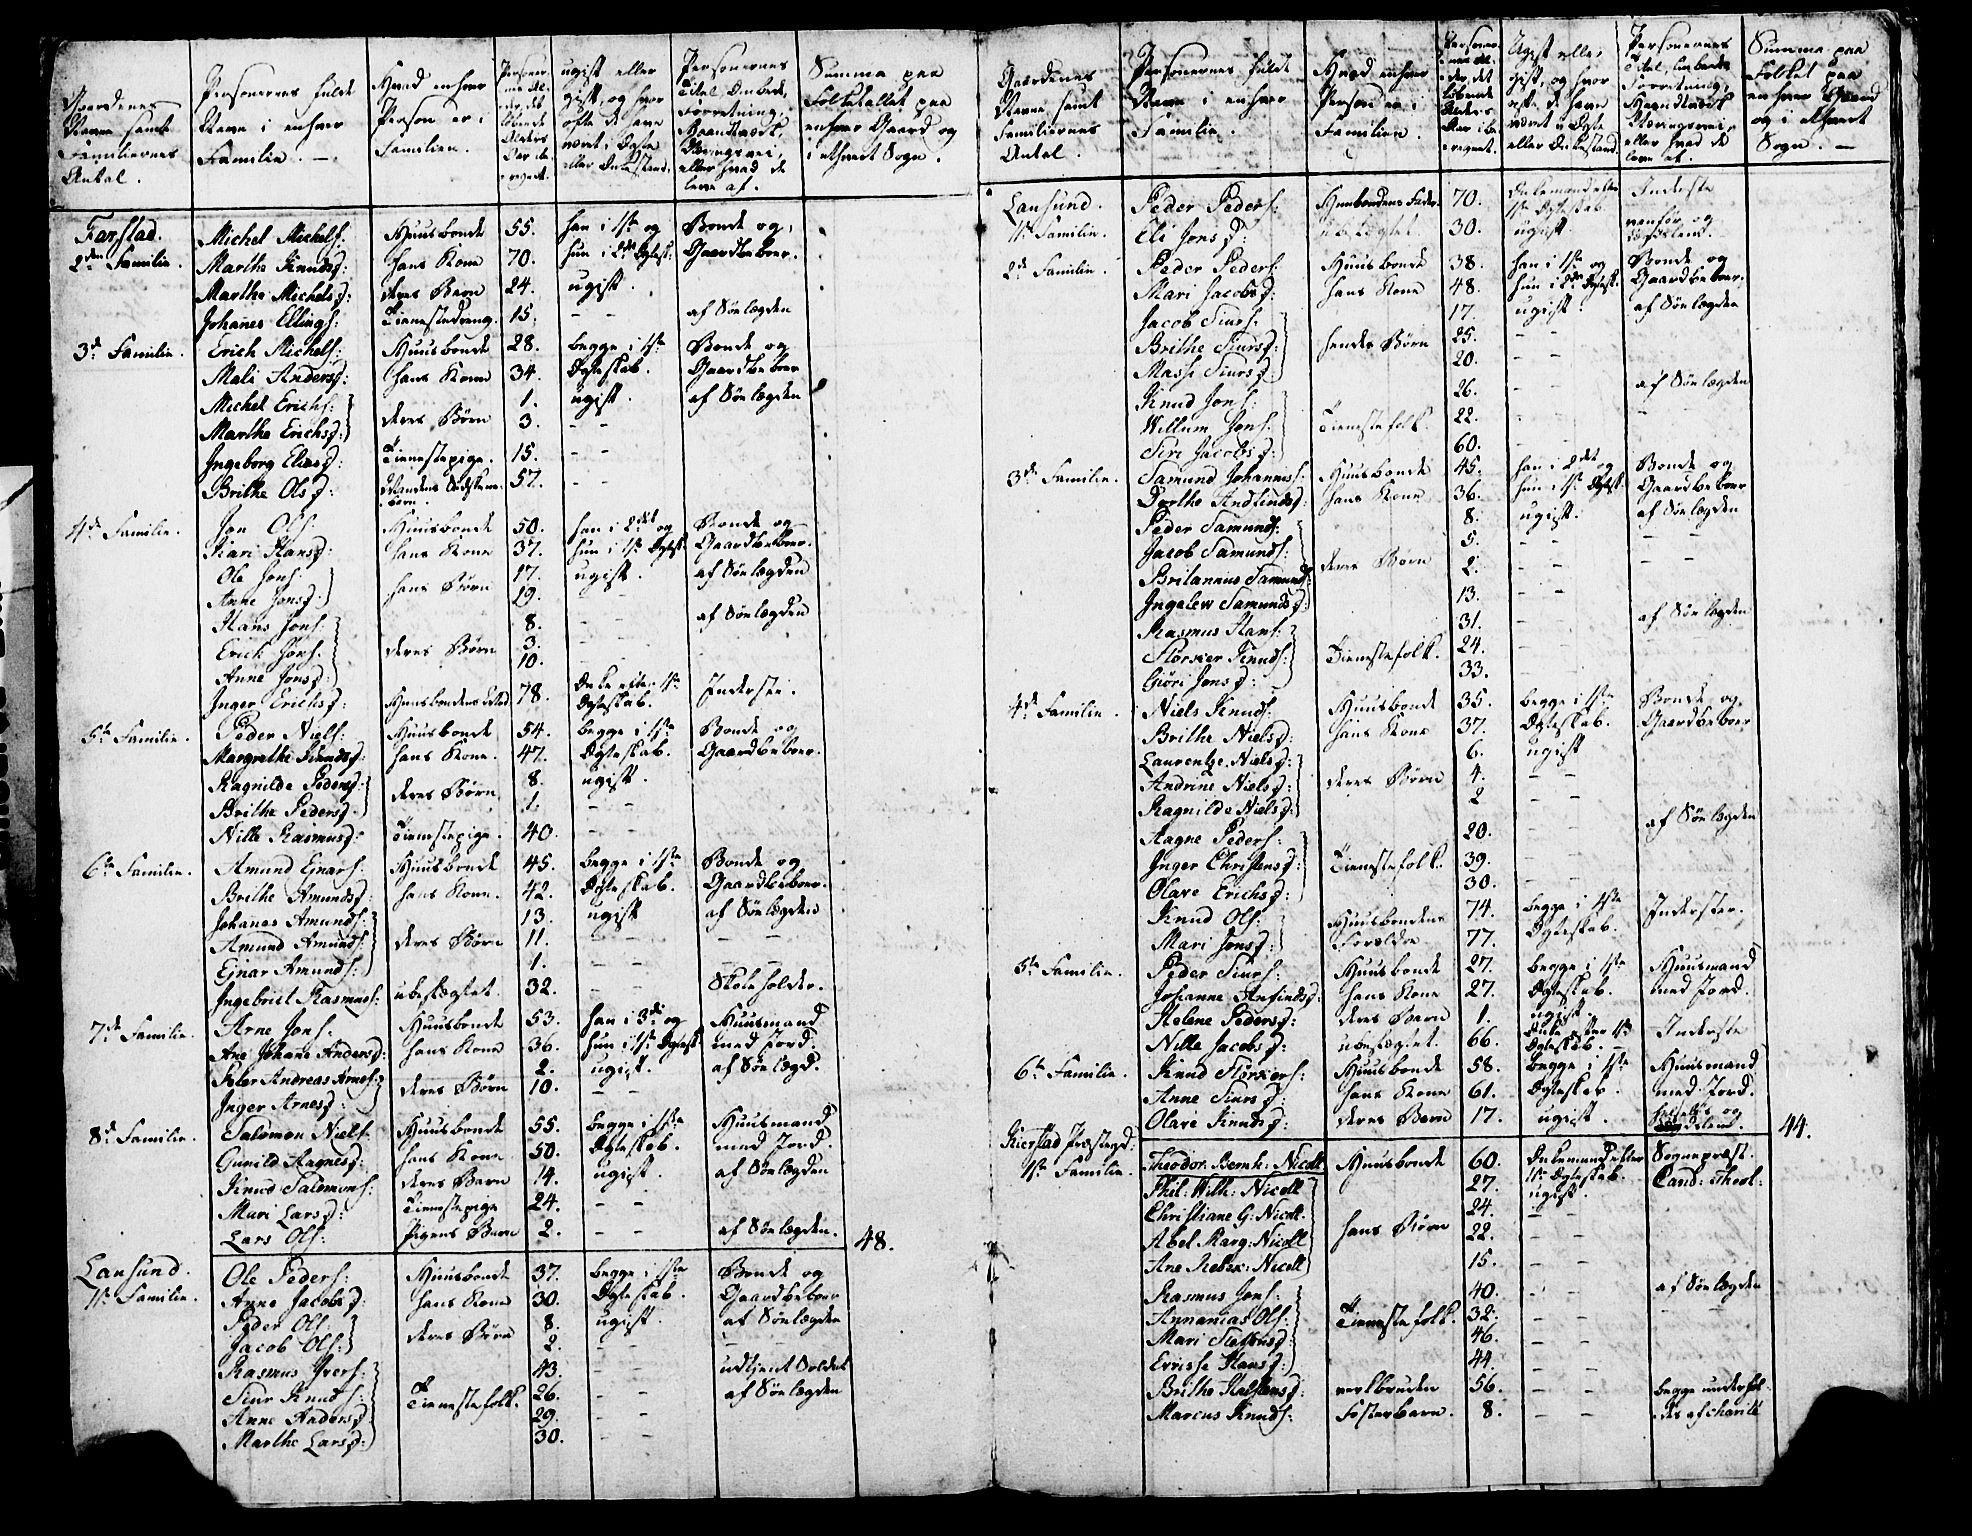 Gaardenes Navne samt Familiernes Antal.
Personernes fulde Navne i enhver Familie. —
Hvad enhver Person er i Familien.
ugift eller gift, og hvor ofte de have været i Ægte eller Enkestand.
Personernes Titel, Embede, Forretning, Haandværk, Næringsvei, eller hvad de leve af.
Summa paa Folketallet paa enhver Gaard og i ethvert Sogn.
Farstad.
Michel Michels: Huusbonde 55. han i 1ste og Bonde og
2den Familie. Marthe Knudsd: hans Kone 70. hun i 2det Ægtesk: Gaardbeboer.
Marthe Michelsd: deres Barn 24. ugift.
Johanes Ellings: Tienestedreng. 15. — — af Søelægden
3de Familie. Erich Michels: Huusbonde 28. begge i 1ste Bonde og
Mali Andersd: hans Kone 34. Ægteskab. Gaardbeboer
Michel Erichs: 1. ugift. af Søelægden
Marthe Erichsd: deres Børn 3. — —
Ingeborg Eliasd: Tienestepige. 15. — —
Brithe Olsd: 57. — —
4de Familie. Jon Ols: Huusbonde 50. han i 2det og Bonde og
Kari Hansd: hans Kone 37. hun i 1ste Ægtesk: Gaardbeboer.
Ole Jons: 17. ugift. af Søelægden
Anne Jonsd: hans Børn 19. — —
Hans Jons: 8. — — af Søelægden
Erich Jons: deres Børn 3. — —
Anne Jonsd: 10.
Inger Erichsd: 78. Enke efter 1ste Ægteskab. Inderste.
5te Familie. Peder Niels: Huusbonde 54. begge i 1ste Bonde og
Margrethe Knudsd: hans Kone. 47. Ægteskab. Gaardbeboer.
Ragnilde Pedersd: 8. ugift.
Brithe Pedersd: deres Børn 1. — —
Nille Rasmusd: Tienestepige. 40. — —
6te Familie. Amund Ejnars: Huusbonde 45. begge i 1ste Bonde og
Brithe Amundsd: hans Kone. 42. Ægteskab. Gaardbeboer.
Johanes Amunds: 13. ugift af Søelægden
Amund Amunds: deres Børn 11. — — — —
Ejnar Amunds: 1. — — — —
Ingebrict Rasmus: ubeslægtet. 32. — — Skoleholder.
7de Familie. Arne Jons: Huusbonde 53. han i 3die og Huusmand
Ane Johane Andersd: hans Kone 36. hun i 1ste Ægtesk: med Jord.
Peter Andreas Arnes: 2. ugift. af Søelægd.
Inger Arnesd: deres Børn 10. — —
8de Familie. Salomon Niels: Huusbonde 55. begge i 1ste Huusmand
Gunild Aagnesd: hans Kone 50. Ægteskab. med Jord.
Knud Salomons: deres Barn 14. ugift. af Søelægden
Mari Larsd: Tienestepige 24. — —
Lars Ols: Pigens Barn 2. — — af Søelægden. 48.
Lansund.
1ste Familie. Ole Peders: Huusbonde 37. begge i 1ste Bonde og
Anne Jacobsd: hans Kone 30. Ægteskab. Gaardbeboer
Peder Ols: 8. ugift. af Søelægden
Jacob Ols: deres Børn 2. — — —
Rasmus Ivers: 43. — — udtient Soldat
Siur Knuds: Tienestefolk. 26. — — af Søelægden
Anne Andersd: 29. — —
Marthe Larsd: 30. — —
Gaardenes Navne samt Familiernes Antal.
Personernes fulde Navne i enhver Familie.
Hvad enhver Person er i Familien.
Ugift eller gift, og hvor ofte de have været i Ægte eller Enkestand.
Personernes Titel, Embede, Forretning, Haandværk, Næringsvei, eller hvad de leve af.
Summa paa Folket paa enhver Gaard og i ethvert Sogn. —
Lansund.
1ste Familie. Peder Peders: Huusbondens Fader. 70. Enkemand efter 1ste Ægteskab Inderste
Eli Jonsd: ubeslægtet. 30. ugift
2de Familie. Peder Peders: Huusbonde 38. han i 1ste og Bonde og
Mari Jacobsd: hans Kone 48. hun i 2det Ægtesk: Gaardbeboer.
Jacob Siurs: 17. ugift. af Søelægden
Brithe Siursd: hendes Børn 25. — —
Masse Siursd: 20.
Knud Jons: 26. — — af Søelægden
Willum Jons: Tienestefolk. 22. — — — —
Siri Jacobsd: 60. — —
3de Familie. Samund Johannes: Huusbonde 45. han i 2det og Bonde og
Dorthe Andfindsd: hans Kone 36. hun i 1ste Ægtesk: Gaardbeboer
Peder Samunds: 8. ugift. af Søelægden
Jacob Samunds: 5. — — — —
Britannus Samunds: deres Børn 2. — — — —
Ingelew Samundsd: 13. — —
Rasmus Hans: 31. — — af Søelægden
Storkier Knuds: Tienestefolk. 24. — —
Giøri Jonsd: 33. — —
4de Familie. Niels Knuds: Huusbonde 35. begge i 1ste Bonde og
Brithe Nielsd: hans Kone 37. Ægteskab. Gaardbeboer
Laurentze Nielsd: 6. ugift
Andrine Nielsd: deres Børn 4. — —
Ragnilde Nielsd: 2 — —
Aagne Peders: 20. — — af Søelægden
Inger Christensd: Tienestefolk. 39. — —
Olave Erichsd: 30. — —
Knud Ols: Huusbondens 74. begge i 1ste Inderster.
Mari Jonsd: Forældre 77. Ægteskab.
5te Familie. Peder Siurs: Huusbonde 27. begge i 1ste Huusmand
Johanne Anfindsd: hans Kone 27. Ægteskab. med Jord.
Helene Pedersd: deres Barn 1. ugift.
Nille Jacobsd: ubeslægtet. 66. Enke efter 1ste Ægteskab. Inderste
6te Familie. Knud Storkiers: Huusbonde 58. begge i 1ste Huusmand
Anne Siursd: hans Kone 61. Ægteskab. med Jord.
Olave Knudsd: deres Barn 17. ugift. 44.
Kierstad Præstegd.
1ste Familie. Theodor Bernh: Nicoll Huusbonde 60. Enkemand efter 1ste Ægteskab. Sognepræst.
Phil: Wilh: Nicoll 27. ugift. Cand: Theol:
Christiane G: Nicoll. 24. — —
Abel Marg: Nicoll hans Børn 22. — —
Ane Rebek: Nicoll 15. — —
Rasmus Jons: 40. — — af Søelægden
Annanias Ols: Tienestefolk. 32. — — — —
Mari 46. — —
Hansd: 44. — —
Brithe 56. — — begge underhol-
Marcus Knuds: Fosterbarn. 8. — — des af charité